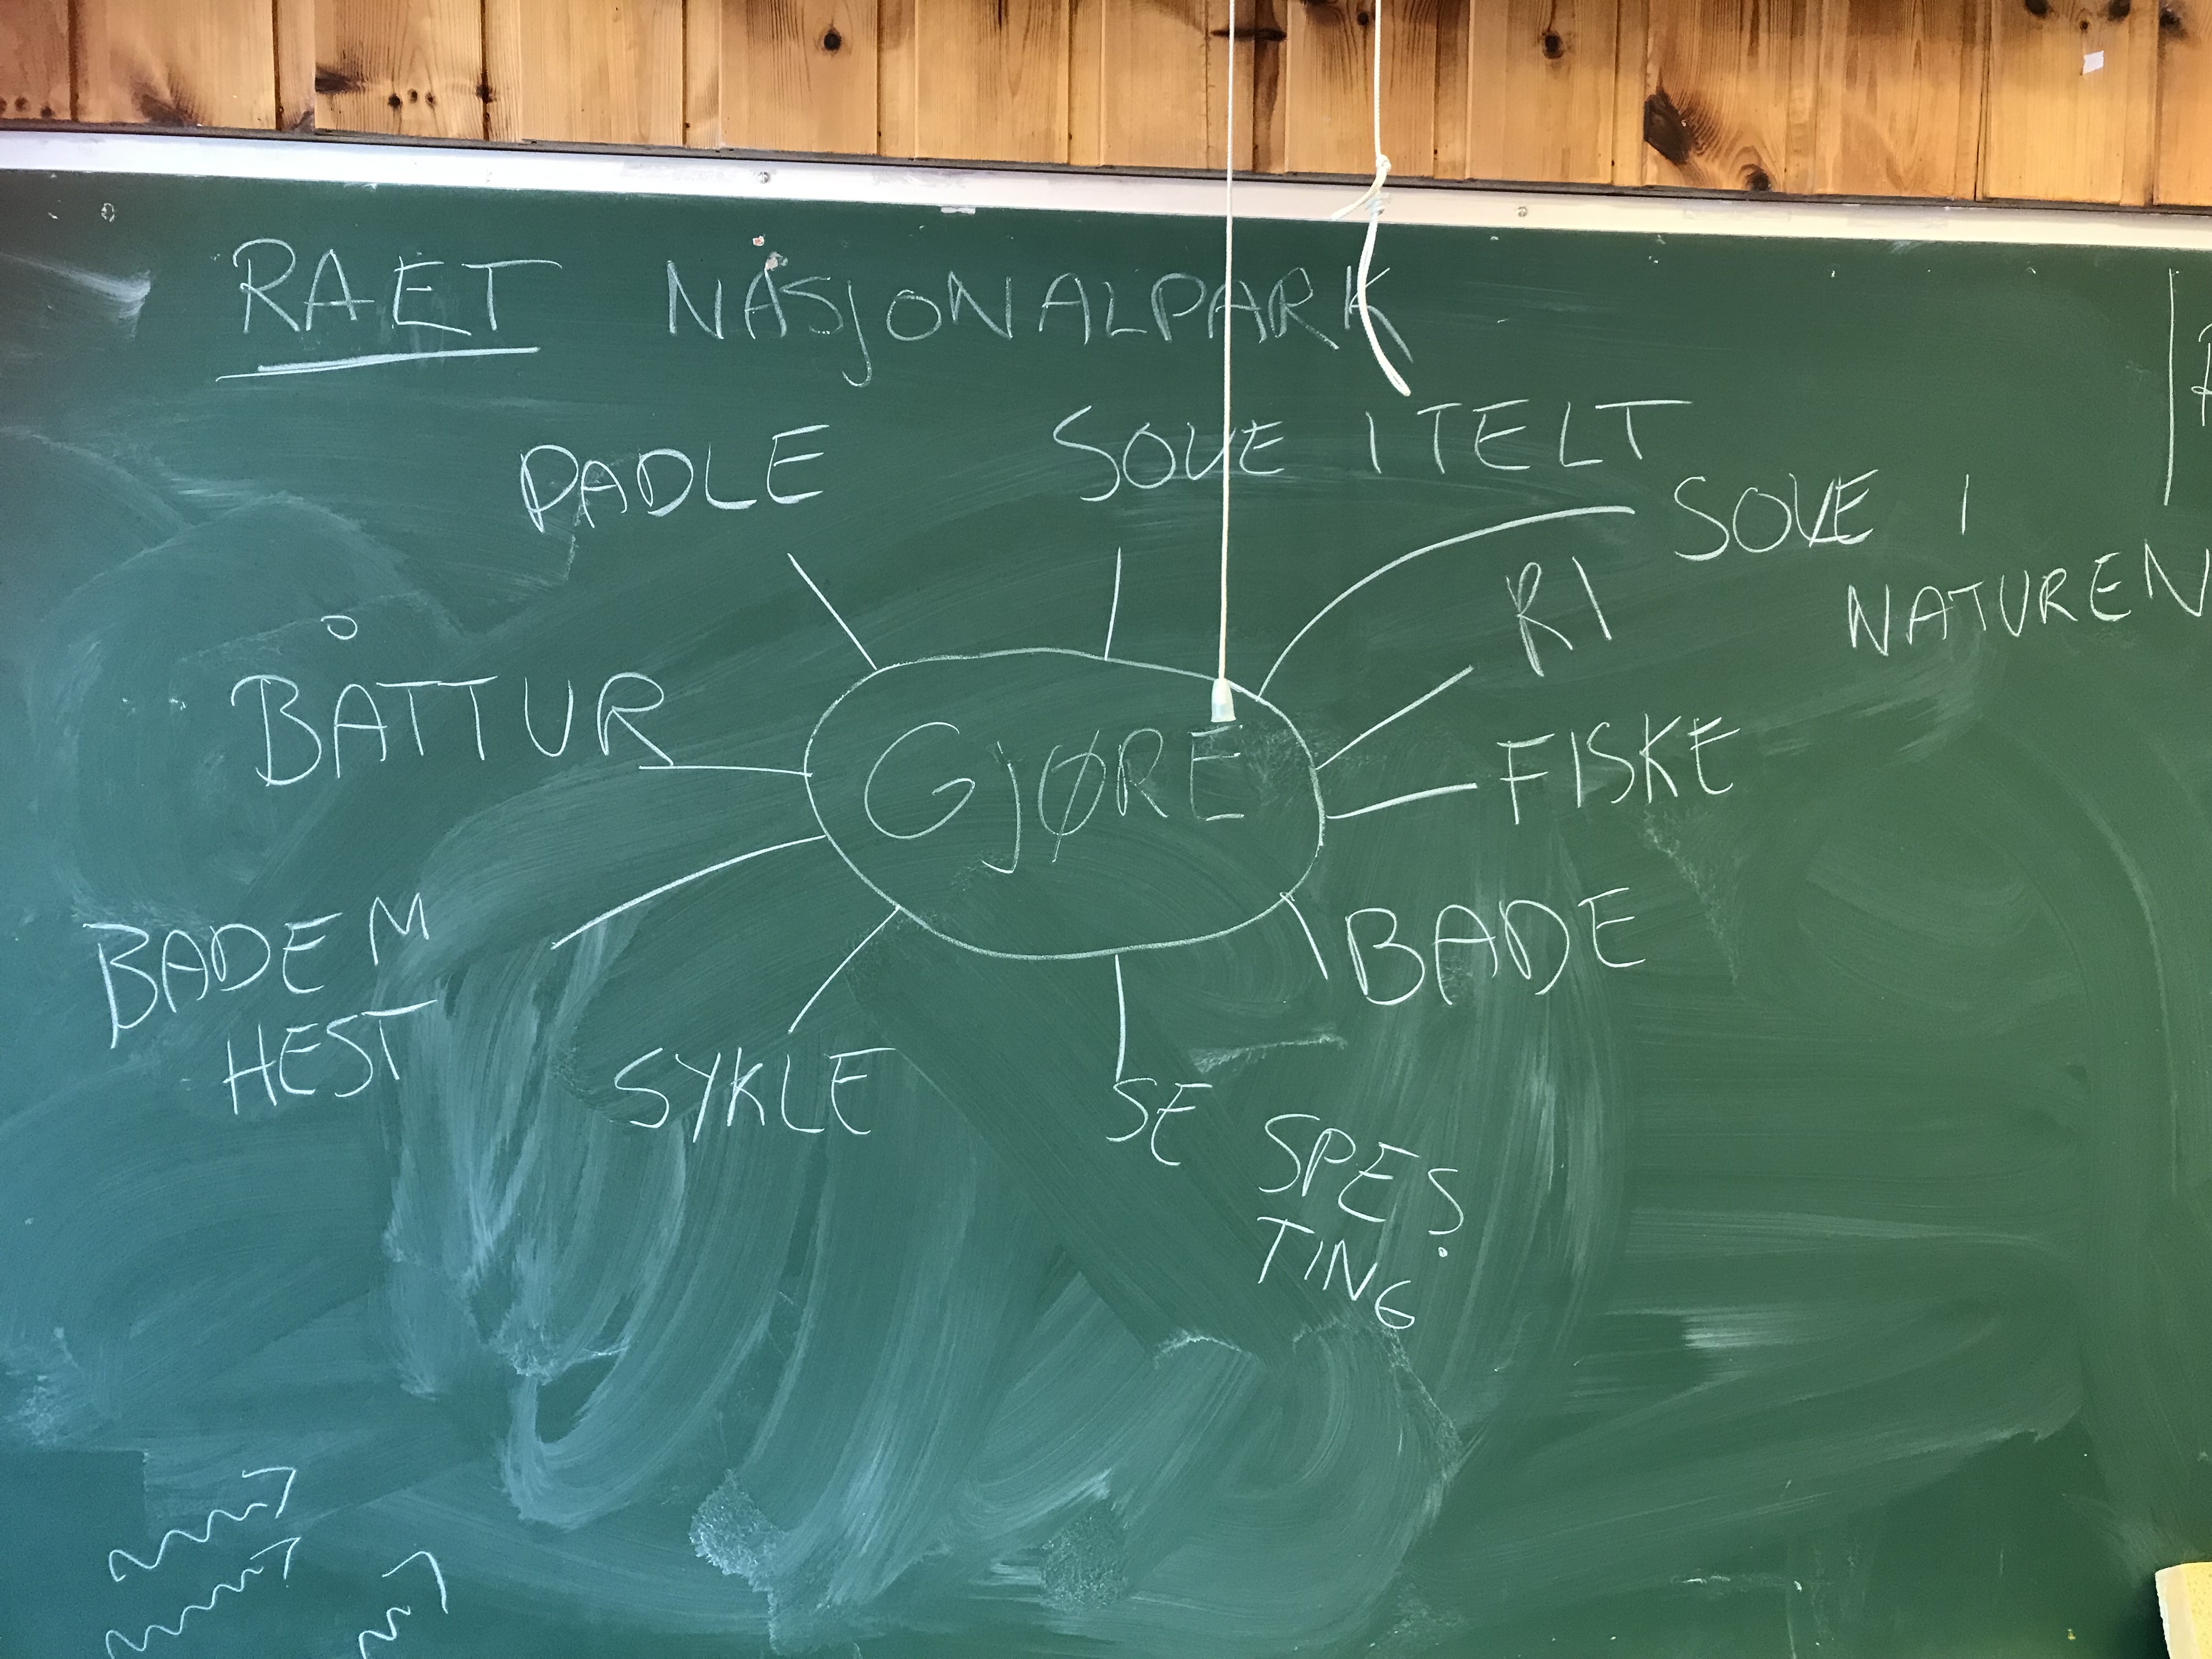 RAET NASJONALPARK
PADLE
SOVE I TELT
SOVE I
NATUREN
RI
BÅTTUR
GJØRE
FISKE
BADE M
HEST
BADE
SYKLE
SE SPES.
TING